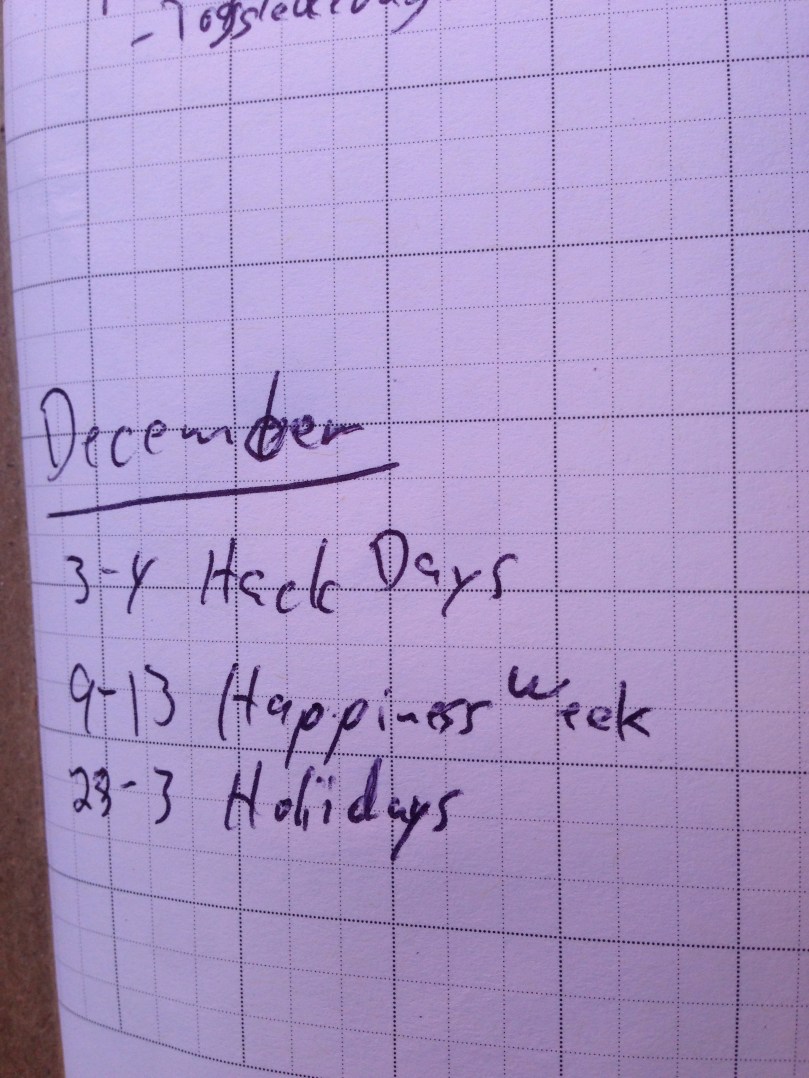 December
3-4 Hack Days
9-13 Happiness Week
23-3 Holidays